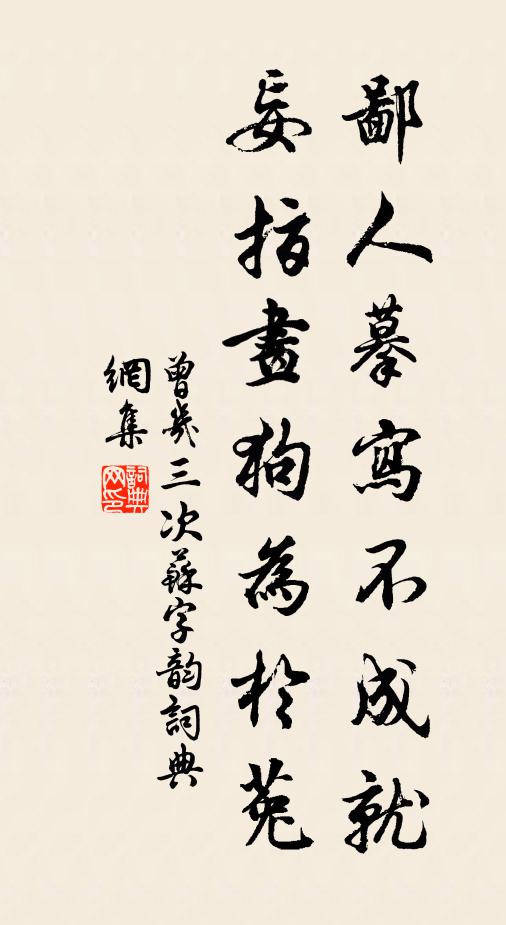 鄙人摹寫不成就
妄指畫狗為於菟
曾幾三次蘇字韵詞典
網集
詞典網印